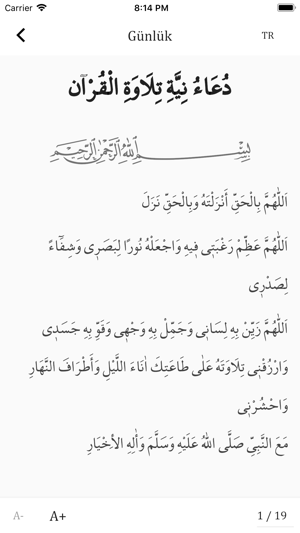 Carrier 8:14 PM
Günlük TR
دُعَاءُ نِيَّةِ تِلَاوَةِ الْقُرْآنِ
بِسْمِ اللّٰهِ الرَّحْمٰنِ الرَّحِيمِ
اَللّٰهُمَّ بِالْحَقِّ أَنْزَلْتَهُ وَبِالْحَقِّ نَزَلَ
اَللّٰهُمَّ عَظِّمْ رَغْبَتِي فِيهِ وَاجْعَلْهُ نُورًا لِبَصَرِي وَشِفَاءً
لِصَدْرِي
اَللّٰهُمَّ زَيِّنْ بِهِ لِسَانِي وَجَمِّلْ بِهِ وَجْهِي وَقَوِّ بِهِ جَسَدِي
وَارْزُقْنِي تِلَاوَتَهُ عَلٰى طَاعَتِكَ اٰنَاءَ اللَّيْلِ وَأَطْرَافَ النَّهَارِ
وَاحْشُرْنِي
مَعَ النَّبِيِّ صَلَّى اللّٰهُ عَلَيْهِ وَسَلَّمَ وَاٰلِهِ الأَخْيَارِ
A- A+ 1 / 19